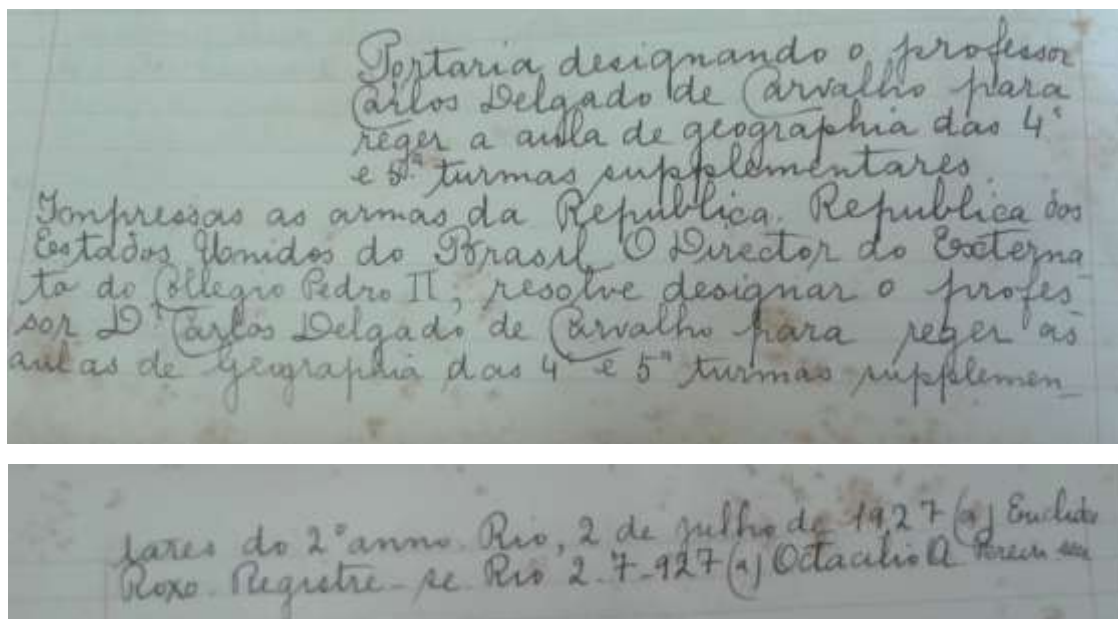 Portaria designando o professor
Carlos Delgado de Carvalho para
reger a aula de geographia das 4ª
e 5ª turmas supplementares.
Impressas as armas da Republica. Republica dos
Estados Unidos do Brasil O Director do Externa_
to do Collegio Pedro II, resolve designar o profes_
sor Dr Carlos Delgado de Carvalho para reger as
aulas de Geographia das 4ª e 5ª turmas supplemen_
tares do 2º anno. Rio, 2 de julho de 1927 (a) Euclides
Roxo. Registre-se Rio 2-7-927 (a) Octacilio A. Pereira